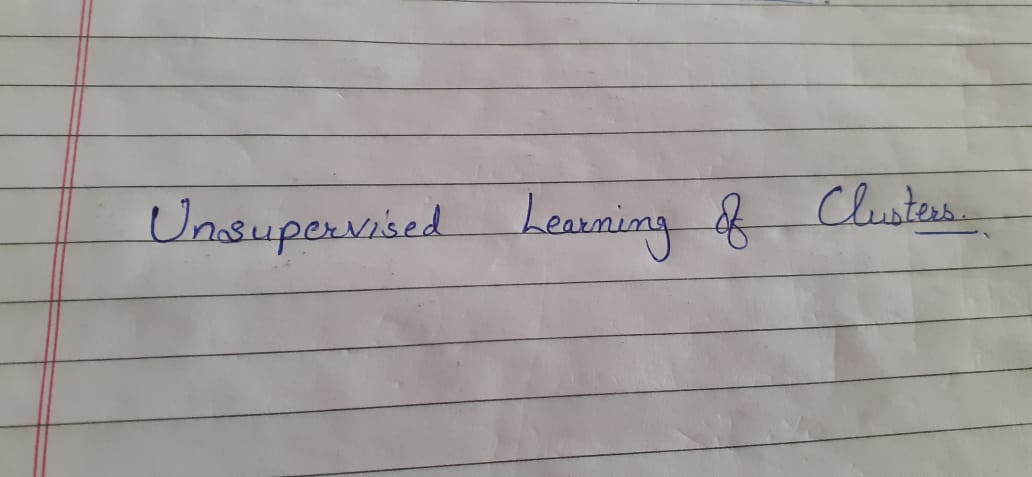 Unsupervised Learning of Clusters.